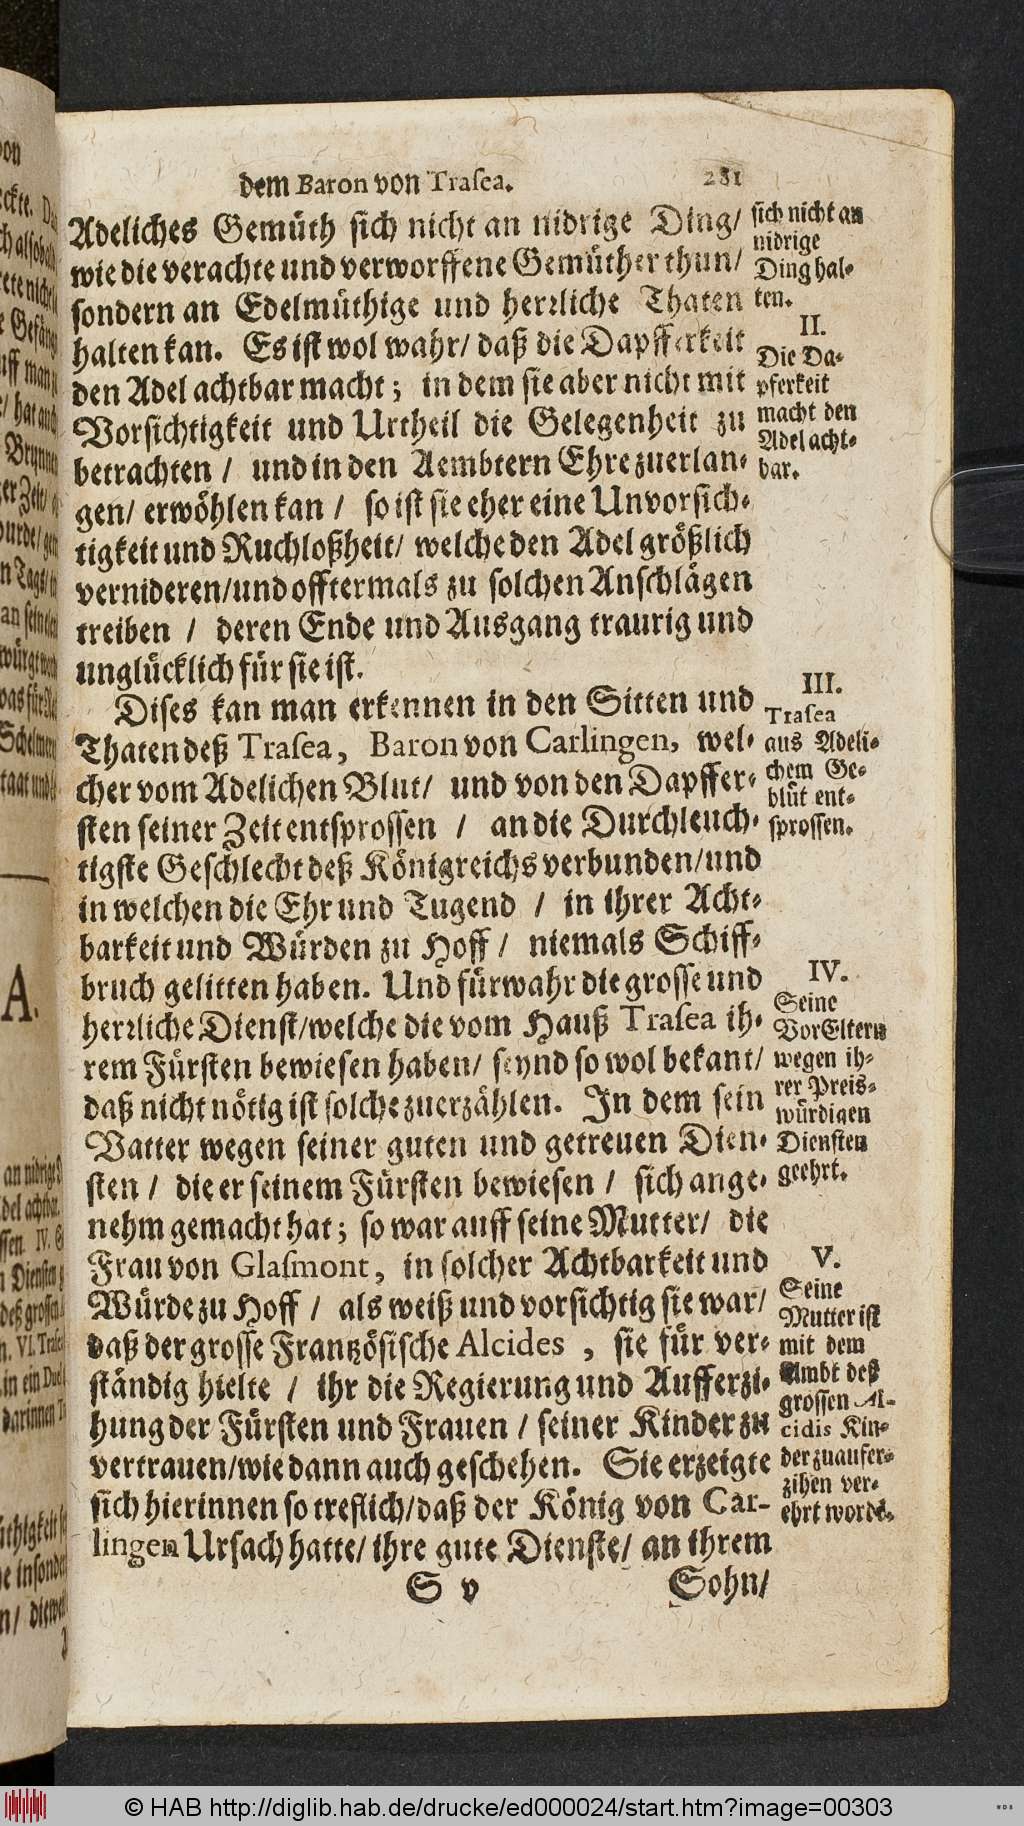 dem Baron von Traſea. 281
Adeliches Gemüth ſich nicht an nidrige Ding/
wie die verachte und verworffene Gemüther thun/
ſondern an Edelmüthige und herꝛliche Thaten
halten kan. Es iſt wol wahr/ daß die Dapfferkeit
den Adel achtbar macht; in dem ſie aber nicht mit
Vorſichtigkeit und Urtheil die Gelegenheit zu
betrachten / und in den Aembtern Ehre zuerlan-
gen/ erwöhlen kan / ſo iſt ſie eher eine Unvorſich-
tigkeit und Ruchloßheit/ welche den Adel größlich
vernideren/und offtermals zu ſolchen Anſchlägen
treiben / deren Ende und Ausgang traurig und
unglücklich für ſie iſt.
Diſes kan man erkennen in den Sitten und
Thaten deß Traſea, Baron von Carlingen, wel-
cher vom Adelichen Blut/ und von den Dapffer-
ſten ſeiner Zeit entſproſſen / an die Durchleuch-
tigſte Geſchlecht deß Königreichs verbunden/und
in welchen die Ehr und Tugend / in ihrer Acht-
barkeit und Würden zu Hoff / niemals Schiff-
bruch gelitten haben. Und fürwahr die groſſe und
herꝛliche Dienſt/welche die vom Hauß Traſea ih-
rem Fürſten bewieſen haben/ ſeynd ſo wol bekant/
daß nicht nötig iſt ſolche zuerzählen. In dem ſein
Vatter wegen ſeiner guten und getreuen Dien-
ſten / die er ſeinem Fürſten bewieſen / ſich ange-
nehm gemacht hat; ſo war auff ſeine Mutter/ die
Frau von Glaſmont, in ſolcher Achtbarkeit und
Würde zu Hoff / als weiß und vorſichtig ſie war/
daß der groſſe Frantzöſiſche Alcides , ſie für ver-
ſtändig hielte / ihr die Regierung und Aufferzi-
hung der Fürſten und Frauen / ſeiner Kinder zu
vertrauen/wie dann auch geſchehen. Sie erzeigte
ſich hierinnen ſo treflich/daß der König von Car-
lingen Urſach hatte/ ihre gute Dienſte/ an ihrem
S v Sohn/
ſich nicht an
nidrige
Ding hal-
ten.
II.
Die Da-
pferkeit
macht den
Adel acht-
bar.
III.
Traſea
aus Adeli-
chem Ge-
blüt ent-
ſproſſen.
IV.
Seine
VorEltern
wegen ih-
rer Preis-
würdigen
Dienſten
geehrt.
V.
Seine
Mutter iſt
mit dem
Ambt deß
groſſen Al-
cidis Kin-
der zuaufer-
zihen ver-
ehrt wordē.
© HAB http://diglib.hab.de/drucke/ed000024/start.htm?image=00303